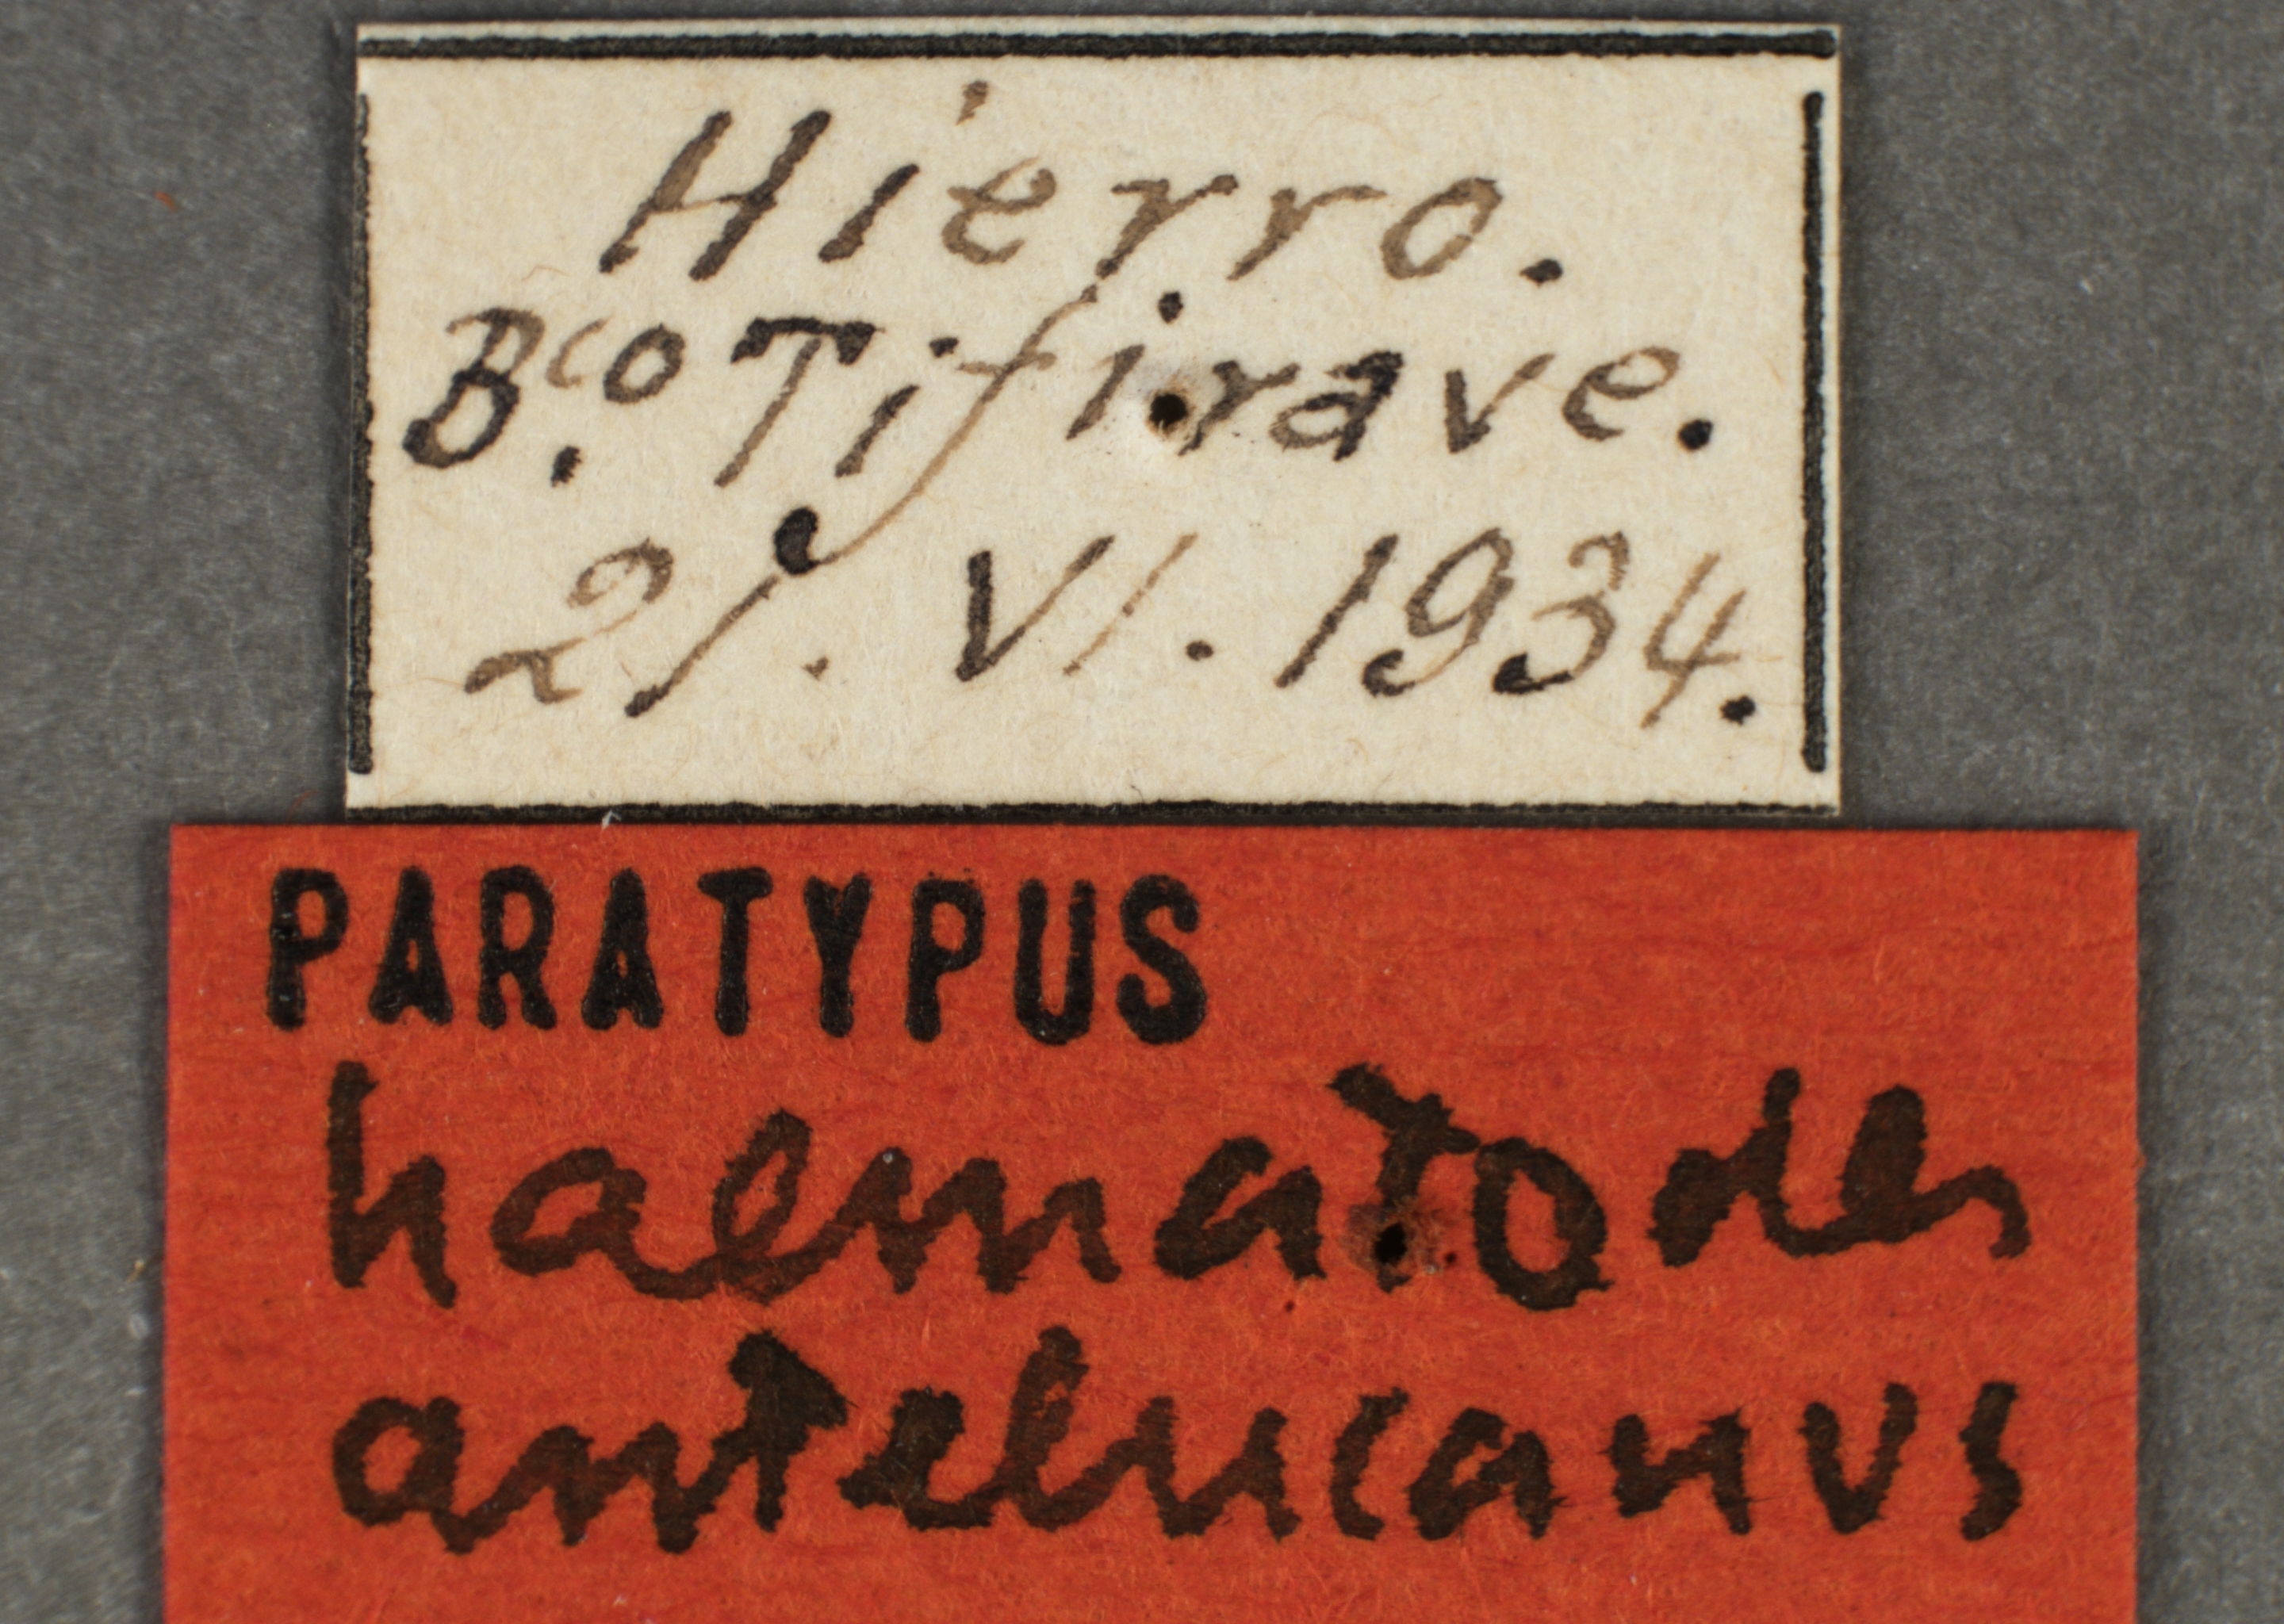 Hierro.
B.co Tifirave.
21. VI. 1934.
PARATYPUS
haematodes
antelucanus